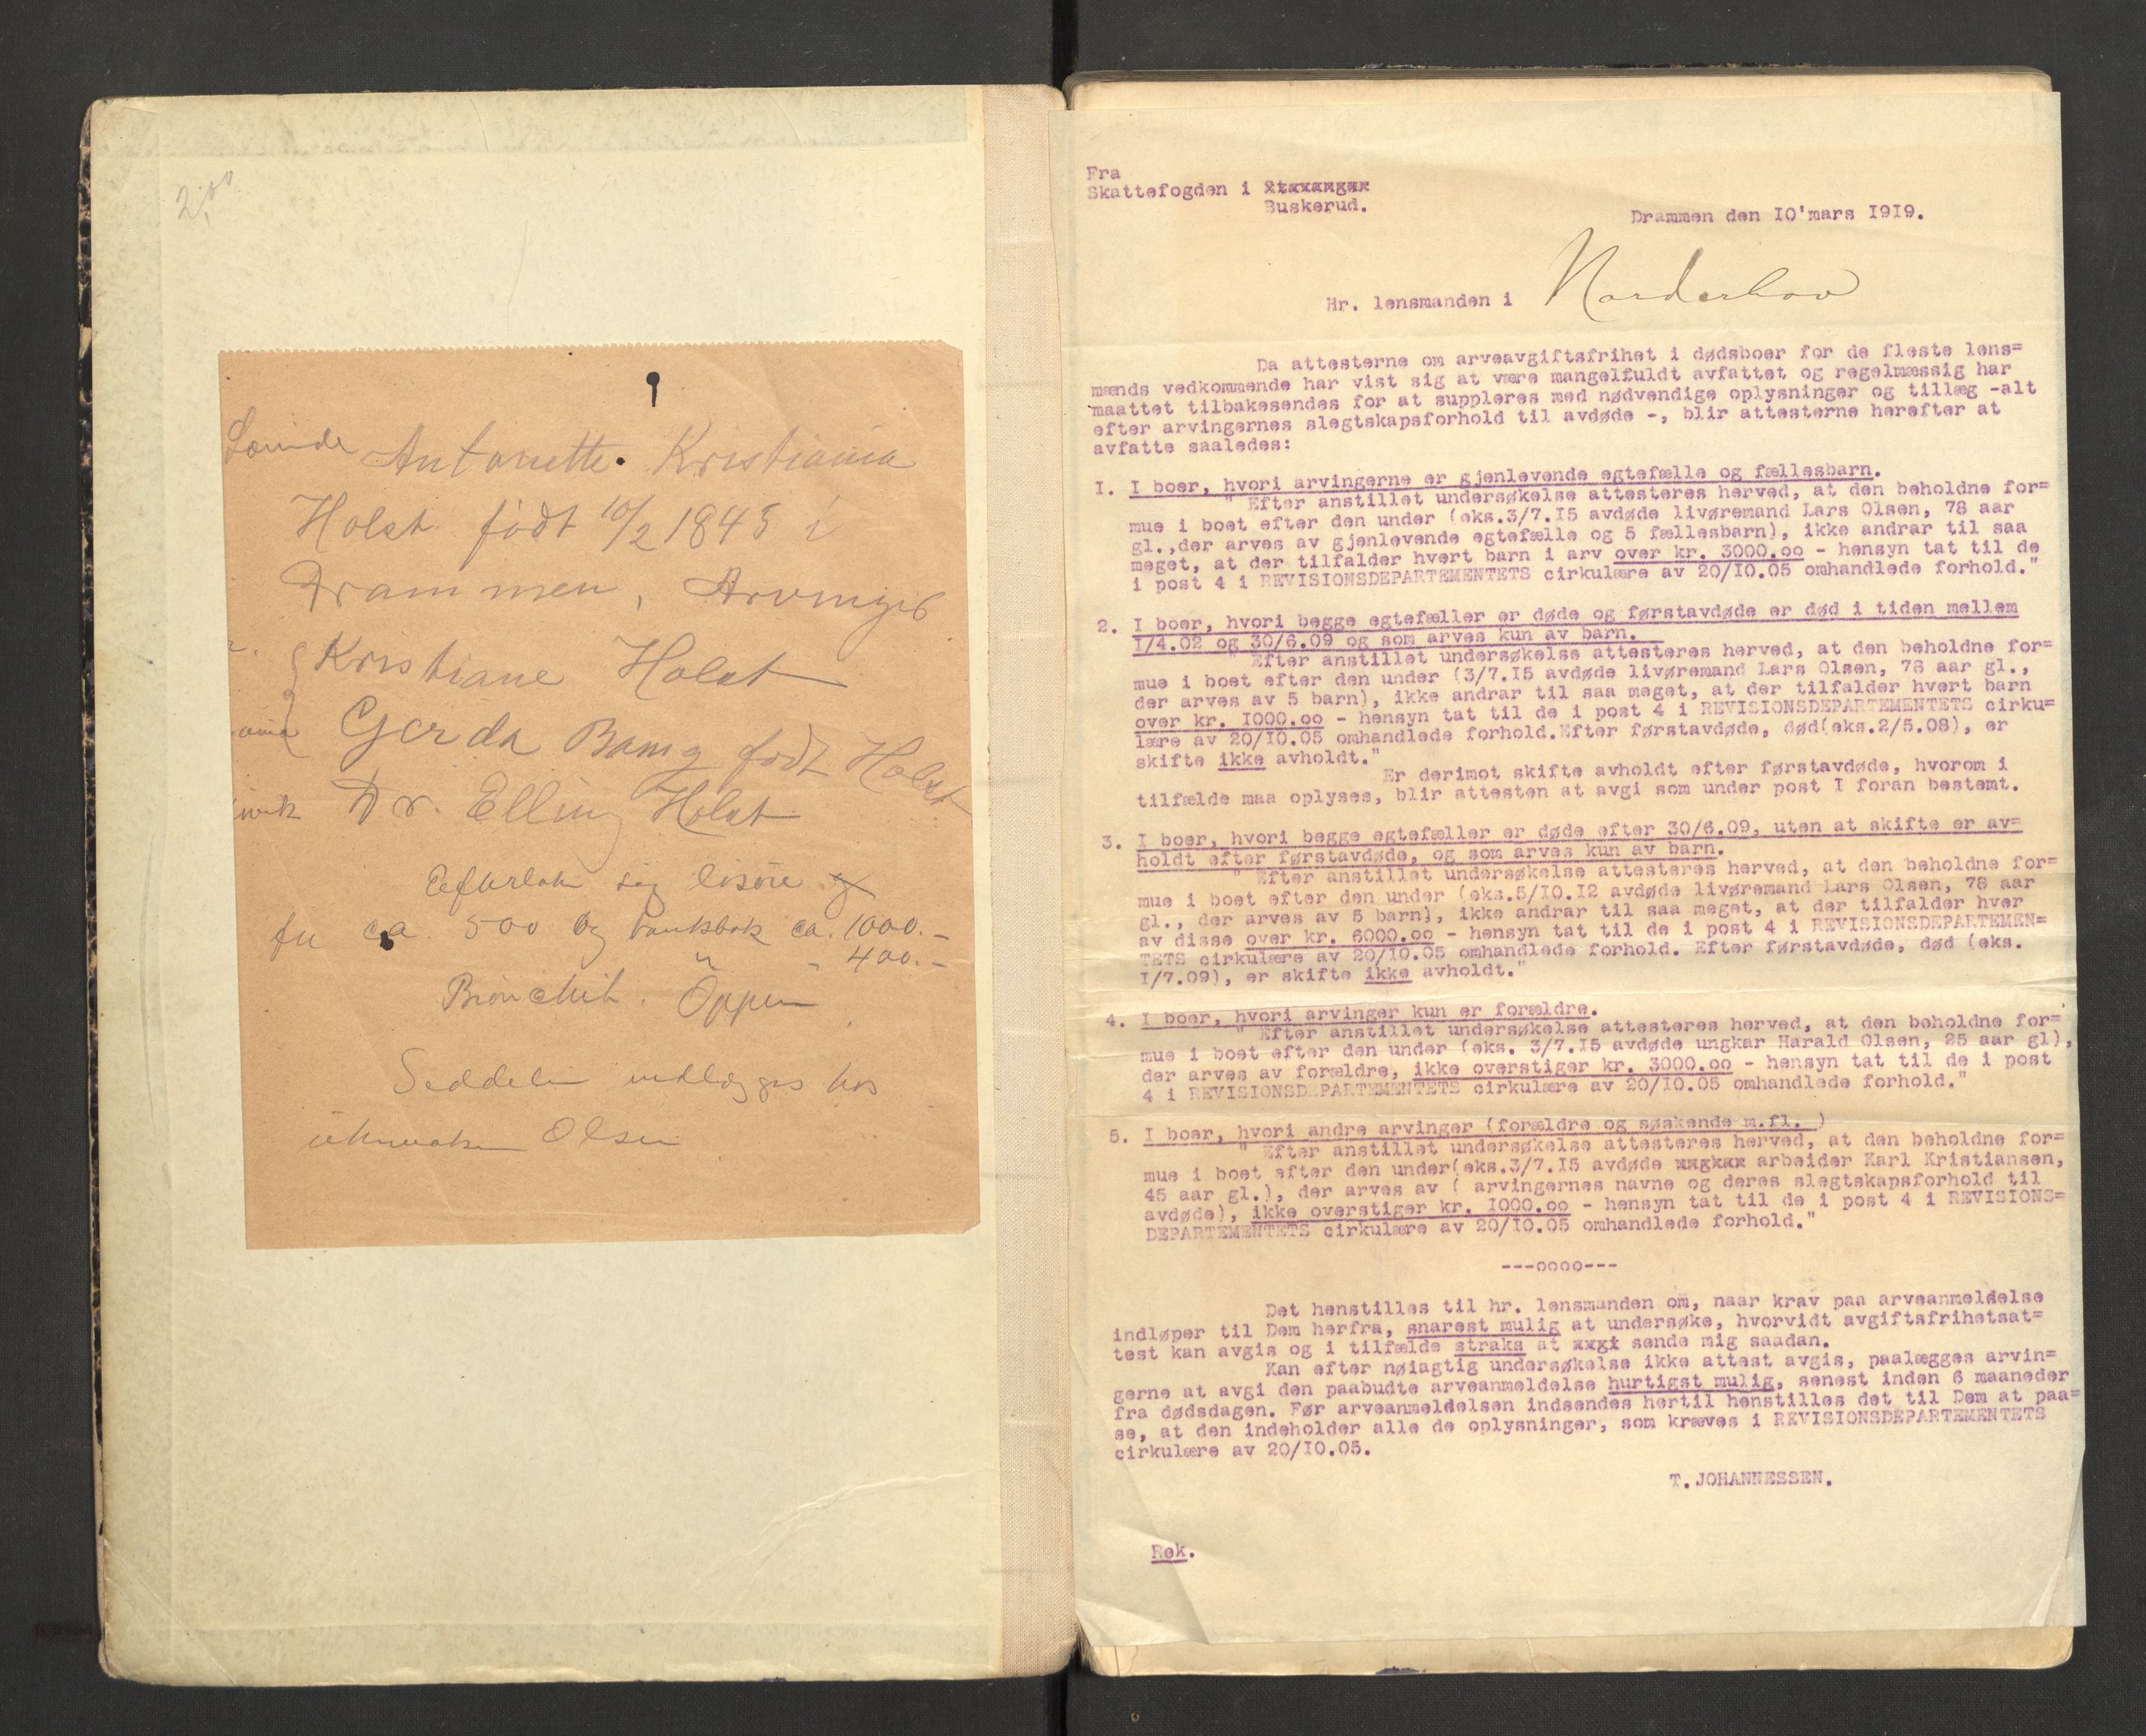 2,00
Antonette Kristiania
Holst født 10/2 1845 i
Drammen, Arvinger
Kristiane Holst
Gerda Bang født Holst
Dr. Elling Holst
Efterlot sig løsøre
ca. 500 og bankbok ca. 1000.-
" - 400.-
Bronchit. Oppen
Seddelen indlægges hos
Olsen
Fra
Skattefogden i Stavanger
Buskerud.
Drammen den 10'mars 1919.
Hr. lensmanden i Norderhov
Da attesterne om arveavgiftsfrihet i dødsboer for de fleste lens=
mænds vedkommende har vist sig at være mangelfuldt avfattet og regelmæssig har
maattet tilbakesendes for at suppleres med nødvendige oplysninger og tillæg -alt
efter arvingernes slegtskapsforhold til avdøde -, blir attesterne herefter at
avfatte saaledes:
I. I boer, hvori arvingerne er gjenlevende egtefælle og fællesbarn.
" Efter anstillet undersøkelse attesteres herved, at den beholdne for=
mue i boet efter den under (eks.3/7.I5 avdøde livøremand Lars Olsen, 78 aar
gl.,der arves av gjenlevende egtefælle og 5 fællesbarn), ikke andrar til saa
meget, at der tilfalder hvert barn i arv over kr. 3000.oo - hensyn tat til de
i post 4 i REVISIONSDEPARTEMENTETS cirkulære av 20/I0.05 omhandlede forhold."
2. I boer, hvori begge egtefæller er døde og førstavdøde er død i tiden mellem
I/4.02 og 30/6.09 og som arves kun av barn.
" Efter anstillet undersøkelse attesteres herved, at den beholdne for=
mue i boet efter den under (3/7.I5 avdøde livøremand Lars Olsen, 78 aar gl.,
der arves av 5 barn), ikke andrar til saa meget, at der tilfalder hvert barn
over kr. I000.oo - hensyn tat til de i post 4 i REVISIONSDEPARTEMENTETS cirku=
lære av 20/I0.05 omhandlede forhold.Efter førstavdøde, død(eks.2/5.08), er
skifte ikke avholdt."
Er derimot skifte avholdt efter førstavdøde, hvorom i
tilfælde maa oplyses, blir attesten at avgi som under post I foran bestemt.
3. I boer, hvori begge egtefæller er døde efter 30/6.09, uten at skifte er av=
holdt efter førstavdøde, og som arves kun av barn.
" Efter anstillet undersøkelse attesteres herved, at den beholdne for=
mue i boet efter den under (eks.5/I0.I2 avdøde livøremand Lars Olsen, 78 aar
gl., der arves av 5 barn), ikke andrar til saa meget, at der tilfalder hver
av disse over kr. 6000.oo - hensyn tat til de i post 4 i REVISIONSDEPARTEMEN=
TETS cirkulære av 20/I0.05 omhandlede forhold. Efter førstavdøde, død (eks.
I/7.09), er skifte ikke avholdt."
4. I boer, hvori arvinger kun er forældre.
" Efter anstillet undersøkelse attesteres herved, at den beholdne for=
mue i boet efter den under (eks. 3/7.I5 avdøde ungkar Harald Olsen, 25 aar gl),
der arves av forældre, ikke overstiger kr. 3000.oo - hensyn tat til de i post
4 i REVISIONSDEPARTEMENTETS cirkulære av 20/I0.05 omhandlede forhold."
5. I boer, hvori andre arvinger (forældre og søskende m.fl. )
" Efter anstillet undersøkelse attesteres herved, at den beholdne for=
mue i boet efter den under(eks.3/7.I5 avdøde ungkar arbeider Karl Kristiansen,
45 aar gl.), der arves av ( arvingernes navne og deres slegtskapsforhold til
avdøde), ikke overstiger kr. I000.oo - hensyn tat til de i post 4 i REVISIONS=
DEPARTEMENTETS cirkulære av 20/I0.05 omhandlede forhold."
---oooo---
Det henstilles til hr. lensmanden om, naar krav paa arveanmeldelse
indløper til Dem herfra, snarest mulig at undersøke, hvorvidt avgiftsfrihetsat=
test kan avgis og i tilfælde straks at sende mig saadan.
Kan efter nøiagtig undersøkelse ikke attest avgis, paalægges arvin=
gerne at avgi den paabudte arveanmeldelse hurtigst mulig, senest inden 6 maaneder
fra dødsdagen. Før arveanmeldelsen indsendes hertil henstilles det til Dem at paa=
se, at den indeholder alle de oplysninger, som kræves i REVISIONSDEPARTEMENTETS
cirkulære av 20/I0.05.
T. JOHANNESSEN.
Rek.